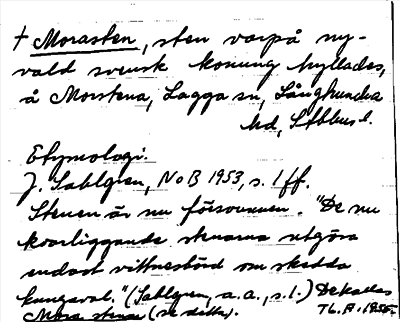 + Morasten, sten varpå ny-
vald svensk konung hyllades,
å Morstena, Lagga sn, Långhundra
hd, Sthlms l.
Etymologi.
J. Sahlgren, NoB 1953, s. 1 ff.
Stenen är nu försvunnen. "De nu
kvarliggande stenarna utgöra
endast vittnesbörd om skedda
kungaval." (Sahlgren, a. a., s. 1.) Dekallas
Mora stenar (se detta). Th. A. 1955.